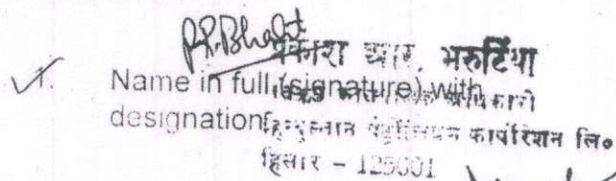 P.R. Bhatt
प्रकाश आर. भरुटिया
1. Name in full (signature) with
designation
हिन्दुस्तान पेट्रोलियम कार्पोरेशन लि॰
हिसार - 125001